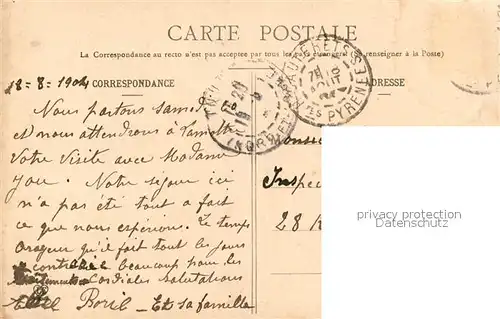 CARTE POSTALE
La Correspondance au recto n'est pas acceptée par tous les pays étrangers (Se renseigner à la Poste)
18-8-1904 CORRESPONDANCE
ADRESSE
PYRÉNÉES
Nous partons samedi 20
et nous attendrons à
Votre Visite avec Madame
Notre séjour ici
n'a pas été tout a fait
ce que nous espérions. Le temps
orageux qu'il fait tout les jours
contrarie beaucoup pour les
Cordiales Salutations
Et sa famille
Monsie
Inspec
28 R
privacy protection
Datenschutz